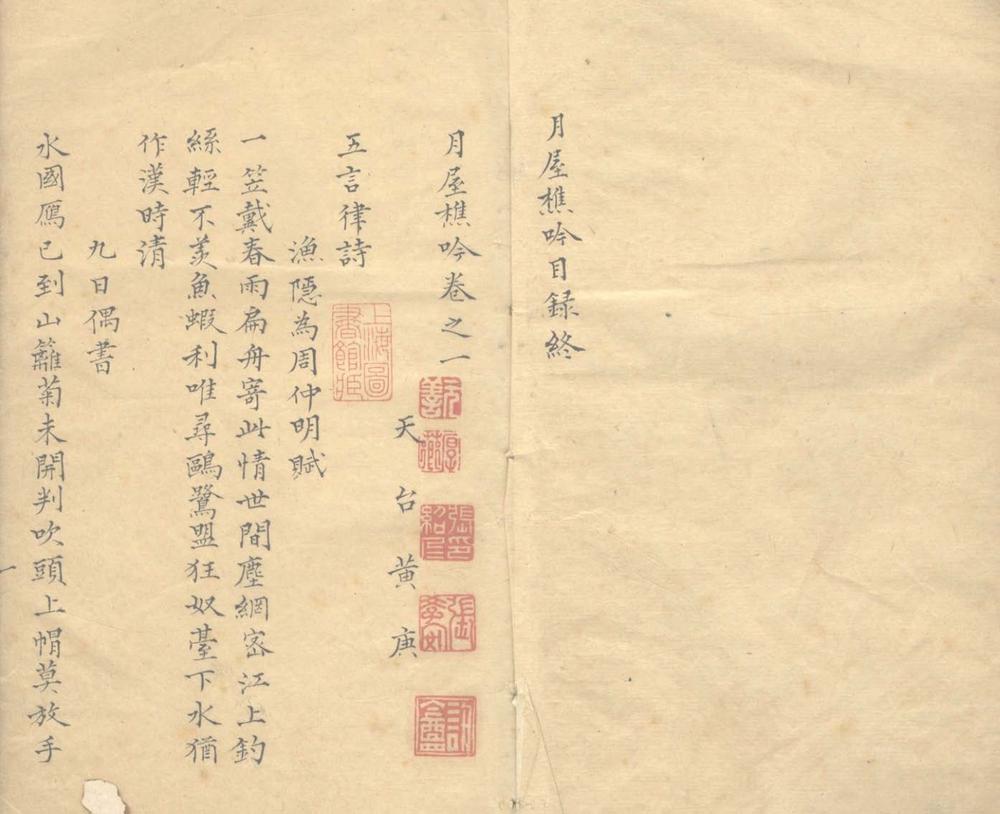 月屋樵吟目録終
月屋樵吟卷之一
天台黄庚
五言律詩
漁隱為周仲明賦
一笠戴春雨扁舟寄此情世間塵網宻江上釣
絲輕不羨魚蝦利唯尋鷗鷺盟狂奴臺下水猶
作漢時清
九日偶書
水國鴈已到山籬菊未開判吹頭上帽莫放手
一
上海圖
書館藏